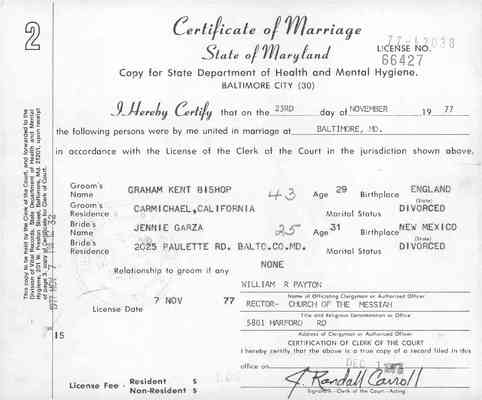 2
Certificate of Marriage
State of Maryland
LICENSE NO.
66427
Copy for State Department of Health and Mental Hygiene.
BALTIMORE CITY (30)
I Hereby Certify that on the 23RD day of NOVEMBER 19 77
the following persons were by me united in marriage at BALTIMORE, MD.
in accordance with the License of the Clerk of the Court in the jurisdiction shown above.
Groom's Name GRAHAM KENT BISHOP 43 Age 29 Birthplace ENGLAND
(State)
Groom's Residence CARMICHAEL, CALIFORNIA Marital Status DIVORCED
Bride's Name JENNIE GARZA 25 Age 31 Birthplace NEW MEXICO
(State)
Bride's Residence 2025 PAULETTE RD. BALTO.CO.MD. Marital Status DIVORCED
Relationship to groom if any NONE
WILLIAM R PAYTON
Name of Officiating Clergyman or Authorized Officer
License Date 7 NOV 77
RECTOR- CHURCH OF THE MESSIAH
Title and Religious Denomination or Office
5801 HARFORD RD
Address of Clergyman or Authorized Officer
15
CERTIFICATION OF CLERK OF THE COURT
I hereby certify that the above is a true copy of a record filed in this
office on DEC 1
License Fee - Resident $
Non-Resident $
J. Randall Carroll
Signature - Clerk of the Court - Acting
This copy to be held by the Clerk of the Court, and forwarded to the
Division of Vital Records, State Department of Health and Mental
Hygiene, 201 W. Preston Street, Baltimore, Md. 21201, upon receipt
of page 3, copy of Certificate for Clerk of Court.